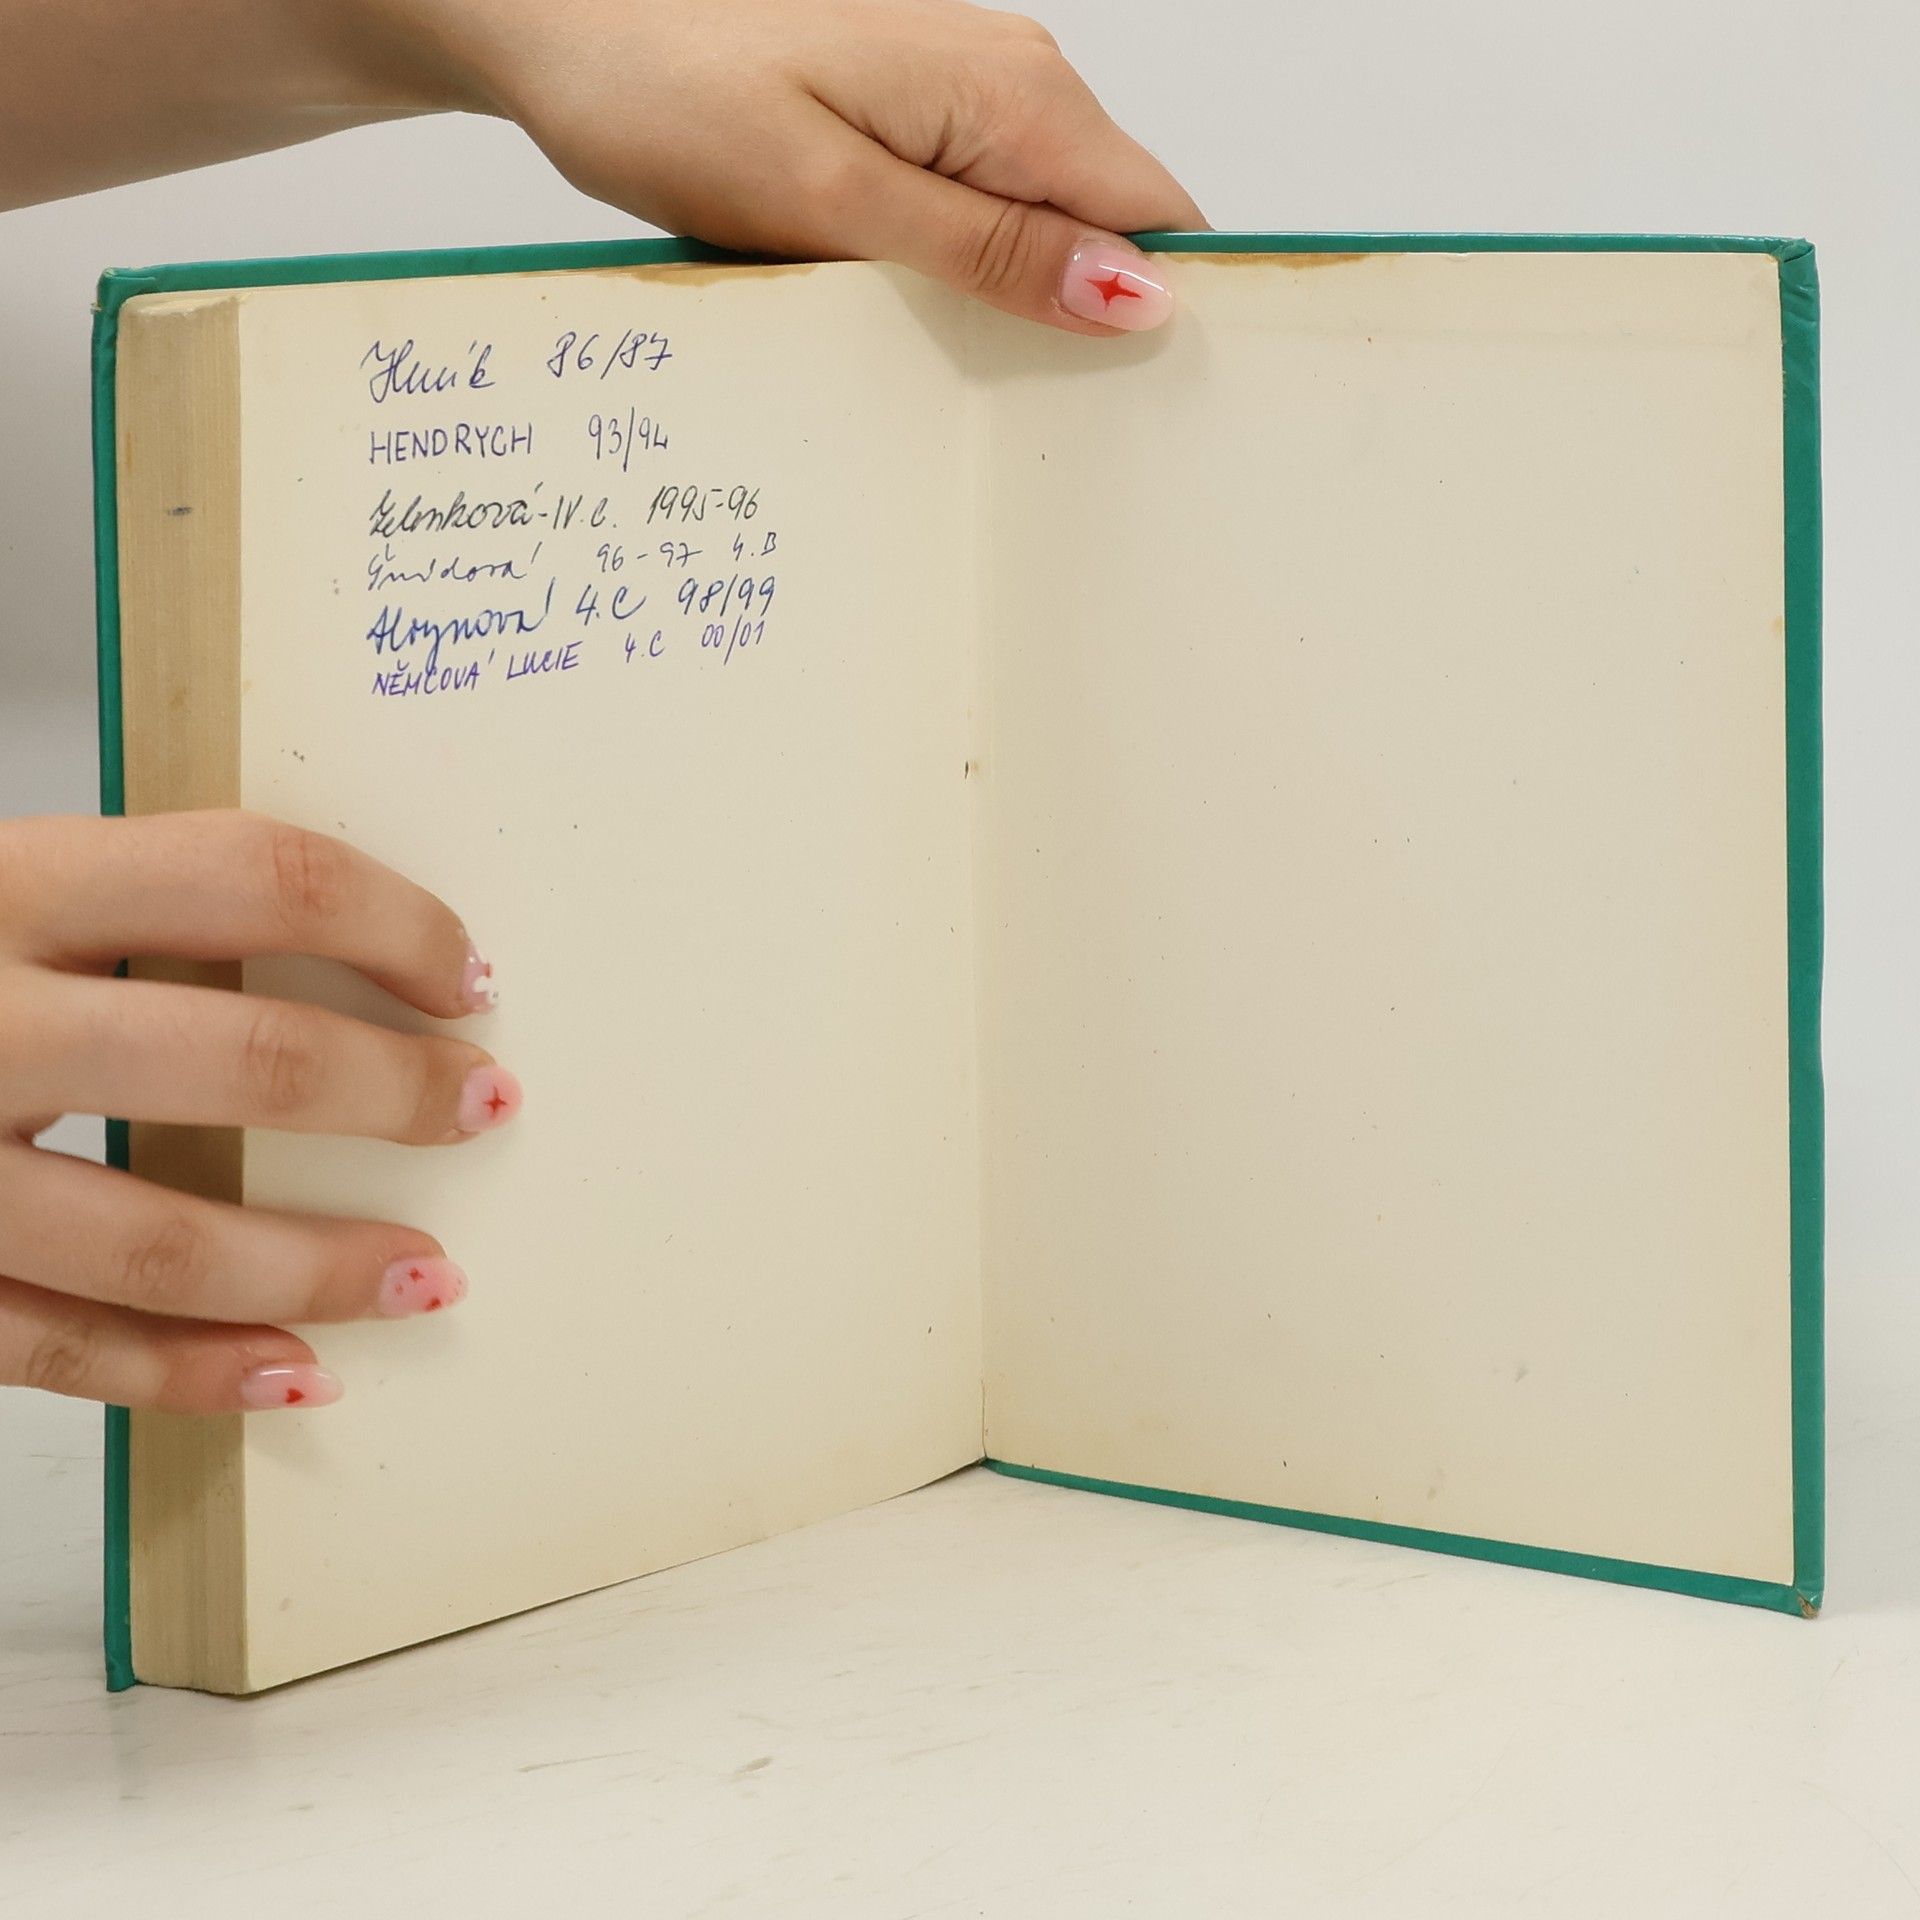 86/87
HENDRYCH 93/94
Zelenková - IV. C. 1995-96
96-97 4. B
4. C 98/99
NĚMCOVÁ LUCIE 4. C 00/01